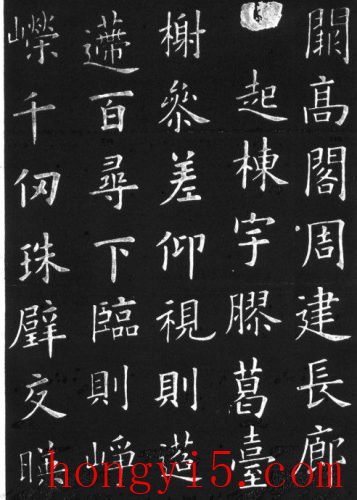 闕髙閣周建長廊
起棟宇膠葛臺
榭叅差仰視則迢
遰百尋下臨則崢
嶸千仞珠璧交暎
hongyi5.com